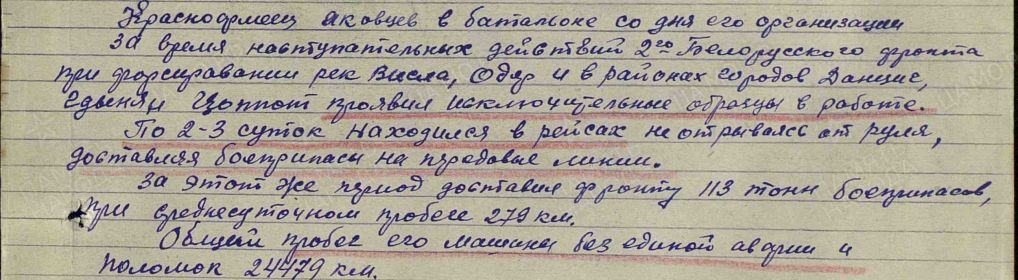 Красноармеец Яковцев в батальоне со дня его организации
За время наступательных действий 2го Белорусского фронта
при форсировании рек Висла, Одер и в районах городов Данциг,
Гдыня, Цоппот проявил исключительные образцы в работе.
По 2-3 суток находился в рейсах не отрываясь от руля,
доставляя боеприпасы на передовые линии.
За этот же период доставил фронту 113 тонн боеприпасов,
при среднесуточном пробеге 279 км.
Общий пробег его машины без единой аварии и
поломок 24479 км.